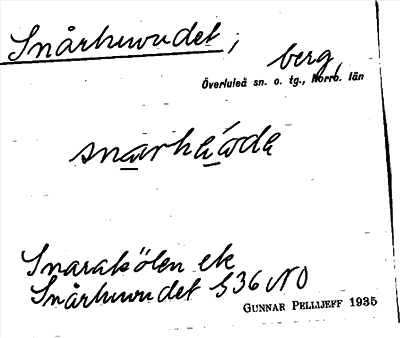 Snårhuvudet, berg,
Överluleå sn. o. tg., Norrb. län
snarhùvde
Snarakölen ek
Snårhuvudet S36 NO
GUNNAR PELLIJEFF 1935